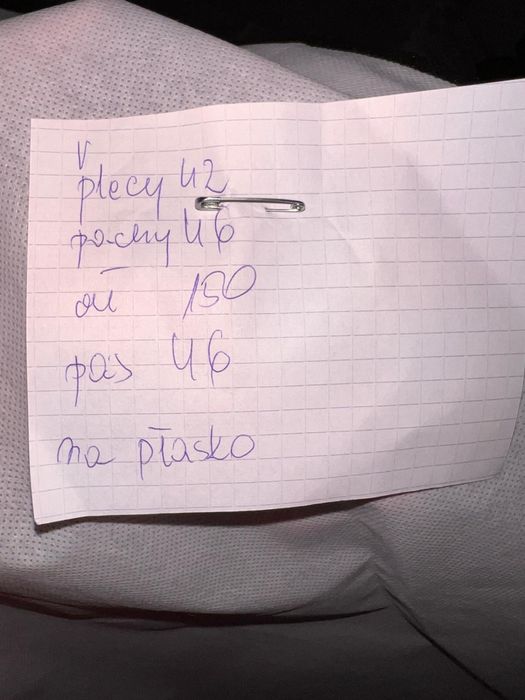 V
plecy 42
pachy 46
dł 150
pas 46
na płasko